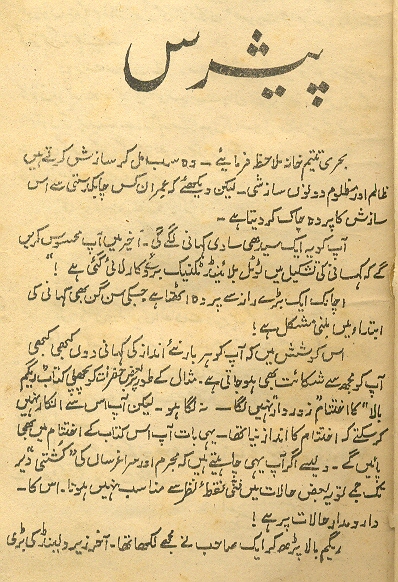 پیشرس
بحری یتیم خانہ ملاحظہ فرمائیے ۔ وہ سب مل کر سازش کرتے ہیں
ظالم اور مظلوم دونوں سازشی ۔ لیکن دیکھئے کہ عمران کس چابکدستی سے اس
سازش کا پردہ چاک کر دیتا ہے ۔
آپ کو یہ ایک سیدھی سادی کہانی لگے گی ۔ آخر میں آپ محسوس کریں
گے کہ کہانی کی تشکیل میں "ڈبل بلائینڈ" ٹکنیک بروئے کار لائی گئی ہے !"
اچانک ایک بڑے راز سے پردہ اٹھتا ہے جسکی سن گن بھی کہانی کی
ابتداء میں ملنی مشکل ہے !
اس کوشش میں کہ آپ کو ہر بار نئے انداز کی کہانی دوں کبھی کبھی
آپ کو مجھ سے شکائت بھی ہو جاتی ہے ۔ مثال کے طور پر بعض حضرات کو پچھلی کتاب "ریگم
بالا" کا اختتام "زوردار" نہیں لگا ۔ نہ لگا ہو ۔ لیکن آپ اس سے انکار نہیں
کر سکتے کہ اختتام کا انداز نیا تھا ۔ یہی بات آپ اس کتاب کے اختتام میں بھی
پائیں گے ۔ ویسے اگر آپ یہی چاہتے ہیں کہ مجرم اور سراغرساں کی "کشتی" دیر
تک جمے تو یہ بعض حالات میں فنی نقطۂ نظر سے مناسب نہیں ہوتا ۔ اس کا ۔
دارومدار حالات پر ہے !
ریگم بالا پڑھ کر ایک صاحب نے مجھے لکھا تھا ۔ آخر زیرو لینڈ کی بڑی